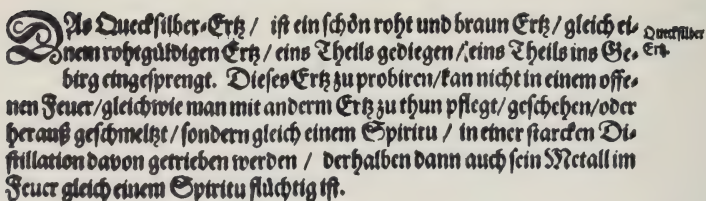 DAs Quecksilber-Ertz / ist ein schön roht und braun Ertz / gleich ei-
nem rohtgüldigen Ertz / eins Theils gediegen / eins Theils ins Ge-
birg eingesprengt. Dieses Ertz zu probiren / kan nicht in einem offe-
nen Feuer / gleichwie man mit anderm Ertz zu thun pflegt / geschehen / oder
herauß geschmeltzt / sondern gleich einem Spiritu / in einer starcken Di-
stillation davon getrieben werden / derhalben dann auch sein Metall im
Feuer gleich einem Spiritu flüchtig ist.
Quecksilber
Ertz.